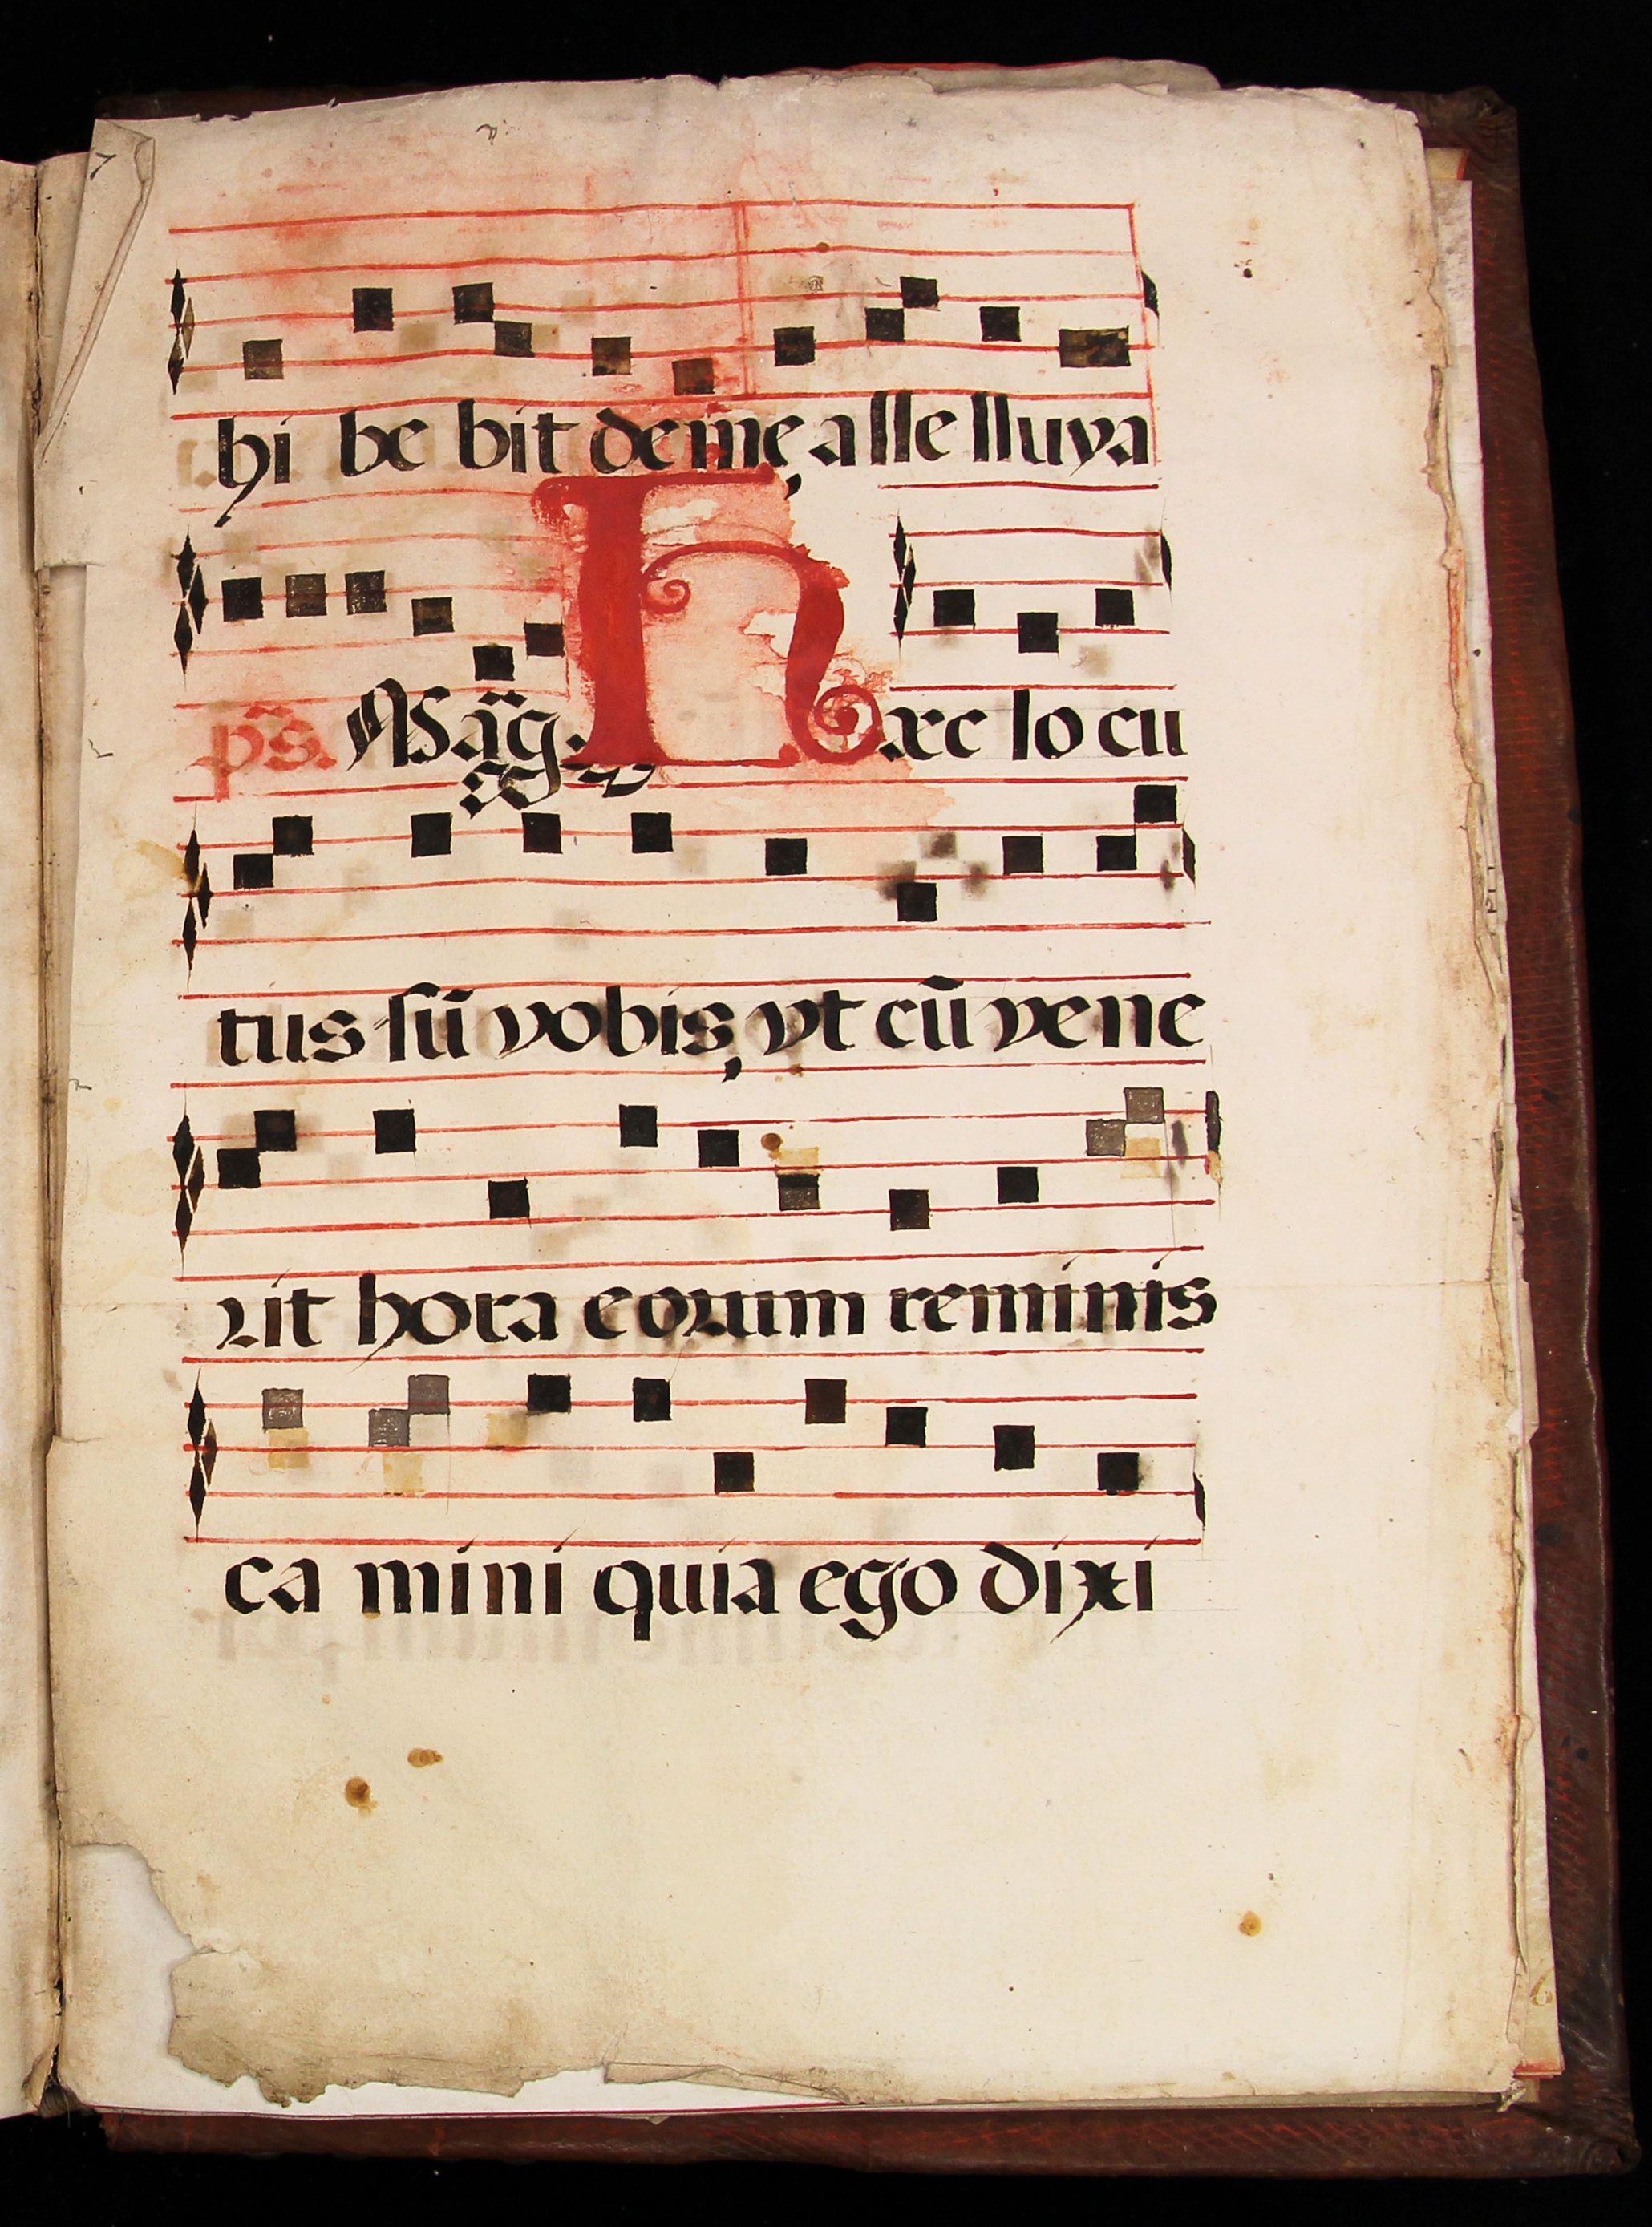 hi be bit de me, alle lluya
ps. Mag. Haec lo cu
tus sũ vobis, vt cũ vene
rit hora eorum reminis
ca mini quia ego dixi